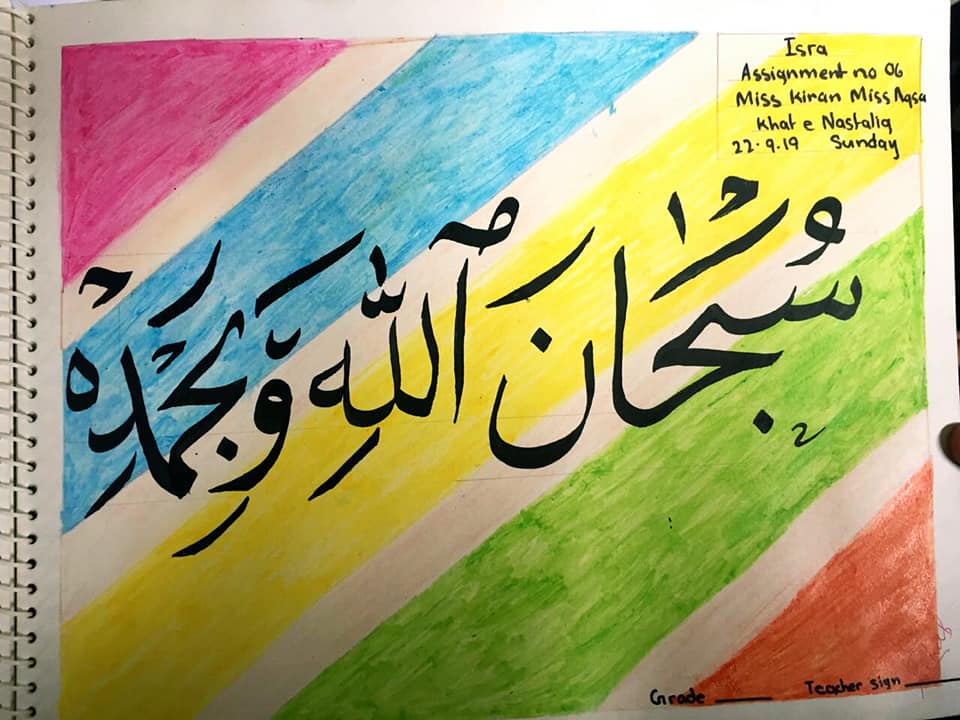 Isra
Assignment no 06
Miss Kiran Miss Aqsa
Khat e Nastaliq
22.9.19 Sunday
سُبْحَانَ ٱللّٰهِ وَبِحَمْدِهْ
Grade ______ Teacher sign ______